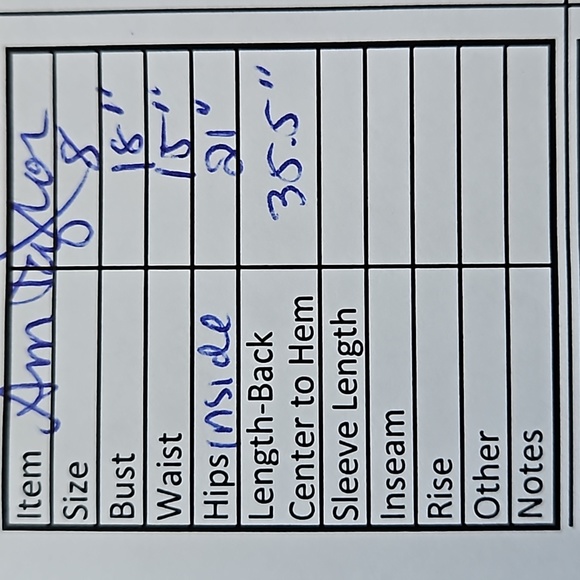 Item Am Taylor
Size 8
Bust 18"
Waist 15"
Hips inside 21"
Length-Back
Center to Hem 35.5"
Sleeve Length
Inseam
Rise
Other
Notes